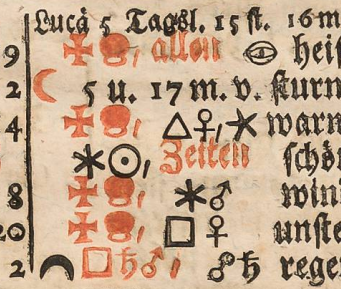 Lucä 5 Tagsl. 15 st. 16 m
9 allen heis
2 ☾ 5 u. 17 m. v. sturm
4 △♀, ⚹ warm
⚹☉, Zeiten schön
8 ⚹♂ wini
20 □♀ unste
2 □♄♂, ☍♄ rege